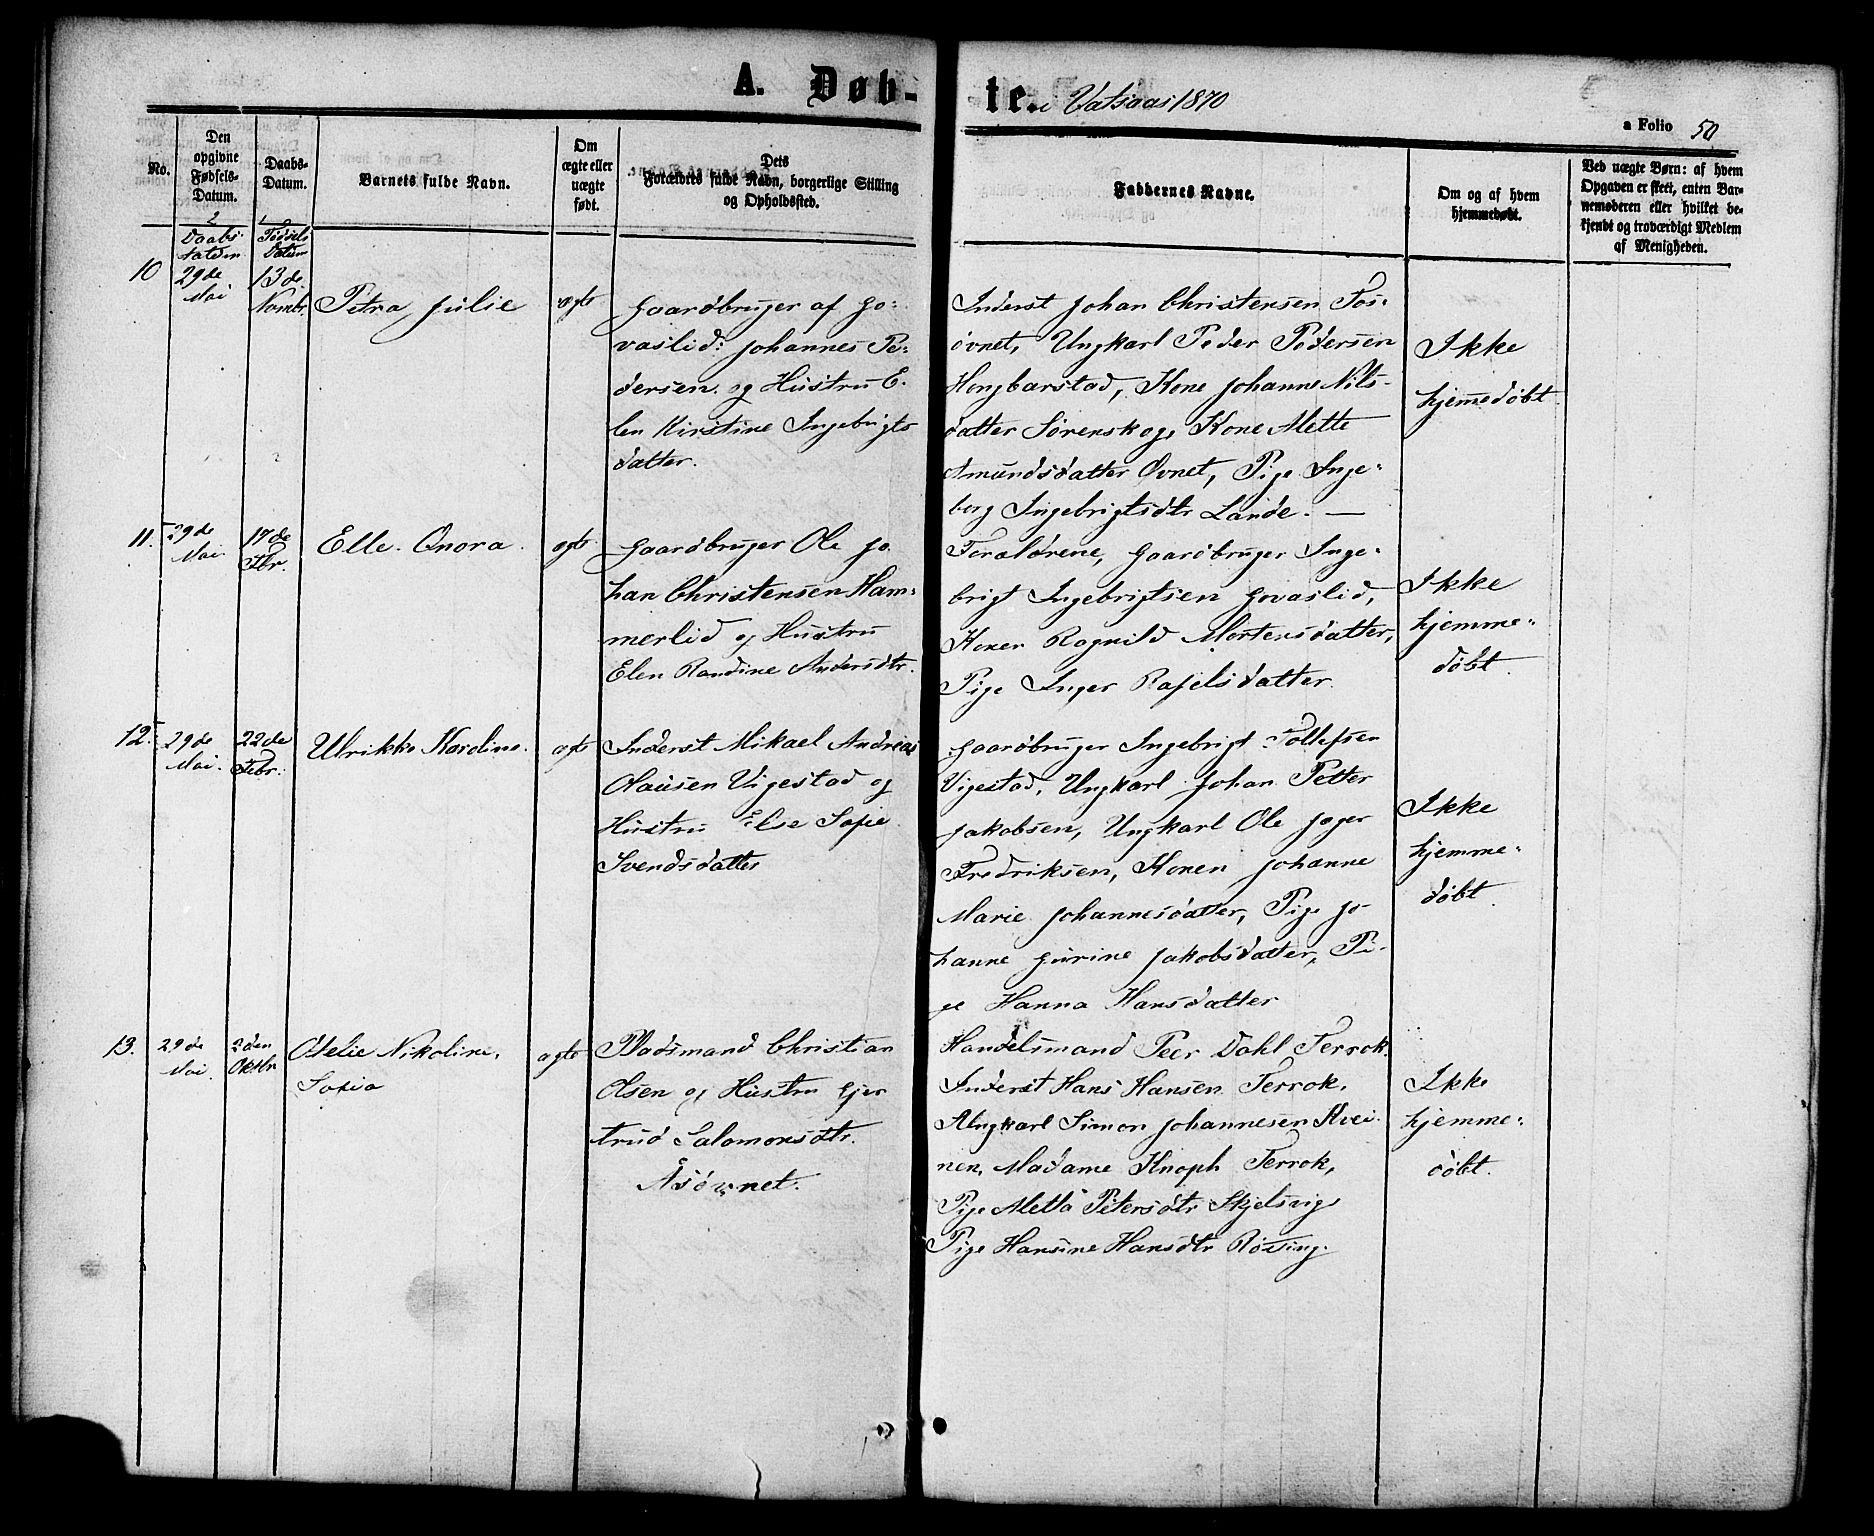 A. Døb-
te. i Vatsaas 1870
a Folio 50
No.
Den
opgivne
Fødsels-
Datum.
Daabs-
Datum.
Barnets fulde Navn.
Om
ægte eller
uægte
født.
Dets
Forældres fulde Navn, borgerlige Stilling
og Opholdssted.
Faddernes Navne.
Om og af hvem
hjemmedøbt.
Ved uægte Børn: af hvem
Opgaven er skeet, enten Bar-
nemoderen eller hvilket be-
kjendt og troværdigt Medlem
af Menigheden.
2
Daabs
Datum
1
Fødsels
Datum
10
29de
Mai
13de
Novmbr.
Petra Julie
ægte
Gaardbruger af Jo-
vaslid: Johannes Pe-
dersen og Hustru E-
len Kirstine Ingebrigts
datter.
Inderst Johan Christensen Fos-
øvnet, Ungkarl Peder Pedersen
Hongbarstad, Kone Johanne Nils-
datter Sørenskog, Kone Mette
Amundsdatter Øvnet, Pige Inge-
borg Ingebrigtsdtr Lande. —
Ikke
hjemedøbt
11.
29de
Mai
17de
Fbr.
Elle Onora.
ægte
Gaardbruger Ole Jo
han Christensen Ham-
merlid og Hustru
Elen Randine Andersdtr.
Forældrene, Gaardbruger Inge-
brigt Ingebrigtsen Jovaslid,
Konen Ragnild Mortensdatter,
Pige Inger Rafelsdatter.
Ikke
hjemme-
døbt.
12.
29de
Mai.
22de
Febr.
Ulrikke Karoline.
ægte
Inderst Mikael Andreas
Olausen Vigestad og
Hustru Else Sofie
Svendsdatter
Gaardbruger Ingebrigt Tollefsen
Vigestad, Ungkarl Johan Petter
Jakobsen, Ungkarl Ole Jøger
Fredriksen, Konen Johanne
Marie Johannesdatter, Pige Jo-
hanne Gurine Jakobsdatter, Pi-
ge Hanna Hansdatter
Ikke
hjemme-
døbt.
13.
29de
Mai.
2den
Oktbr
Otelie Nikoline,
Sofia
ægte
Pladsmand Christian
Olsen og Hustru Gjer
trud Salomonsdtr.
Åsøvnet.
Handelsmand Peer Dahl Terrok.
Inderst Hans Hansen Terrok,
Ungkarl Simon Johannesen Kvei-
nen, Madame Knoph Terrok,
Pige Metta Petersdtr Skjelsvig
Pige Hansine Hansdtr Røssing.
Ikke
hjemme-
døbt.